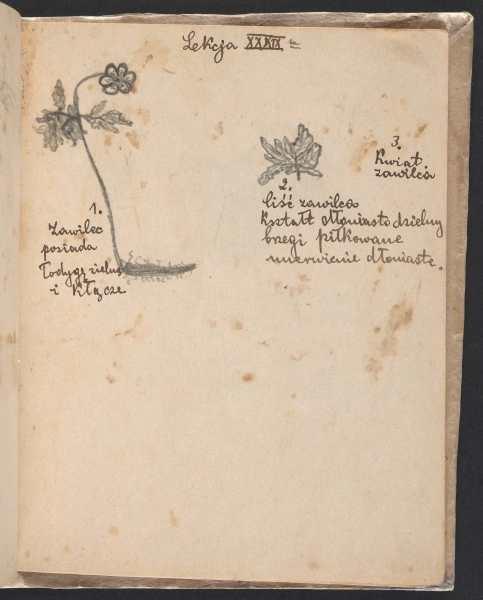 Lekcja XXXIX ta
1.
Zawilec
posiada
łodygę zielną
i kłącze
2.
liść zawilca
kształt dłoniasto dzielny
brzegi piłkowane
unerwienie dłoniaste.
3.
Kwiat
zawilca